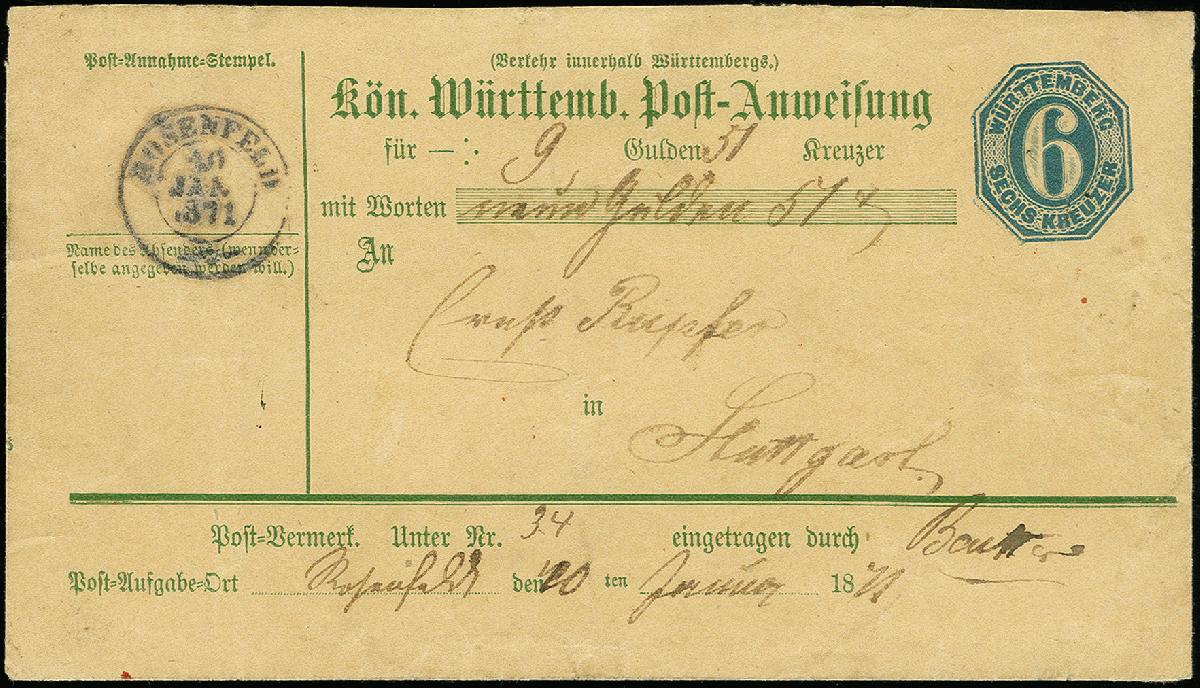 Post-Annahme-Stempel.
ROSENFELD
JAN.
1871
Name des Absenders (wenn der-
selbe angegeben werden will.)
(Verkehr innerhalb Württembergs.)
Kön. Württemb. Post-Anweisung
für — : 9 Gulden 51 Kreuzer
mit Worten neun Gulden 51 x
An
Ernst Kupfer
in
Stuttgart
WÜRTTEMBERG
6
SECHS KREUZER
Post-Vermerk. Unter Nr. 34 eingetragen durch
Post-Aufgabe-Ort Rosenfeld den 20 ten Januar 1871